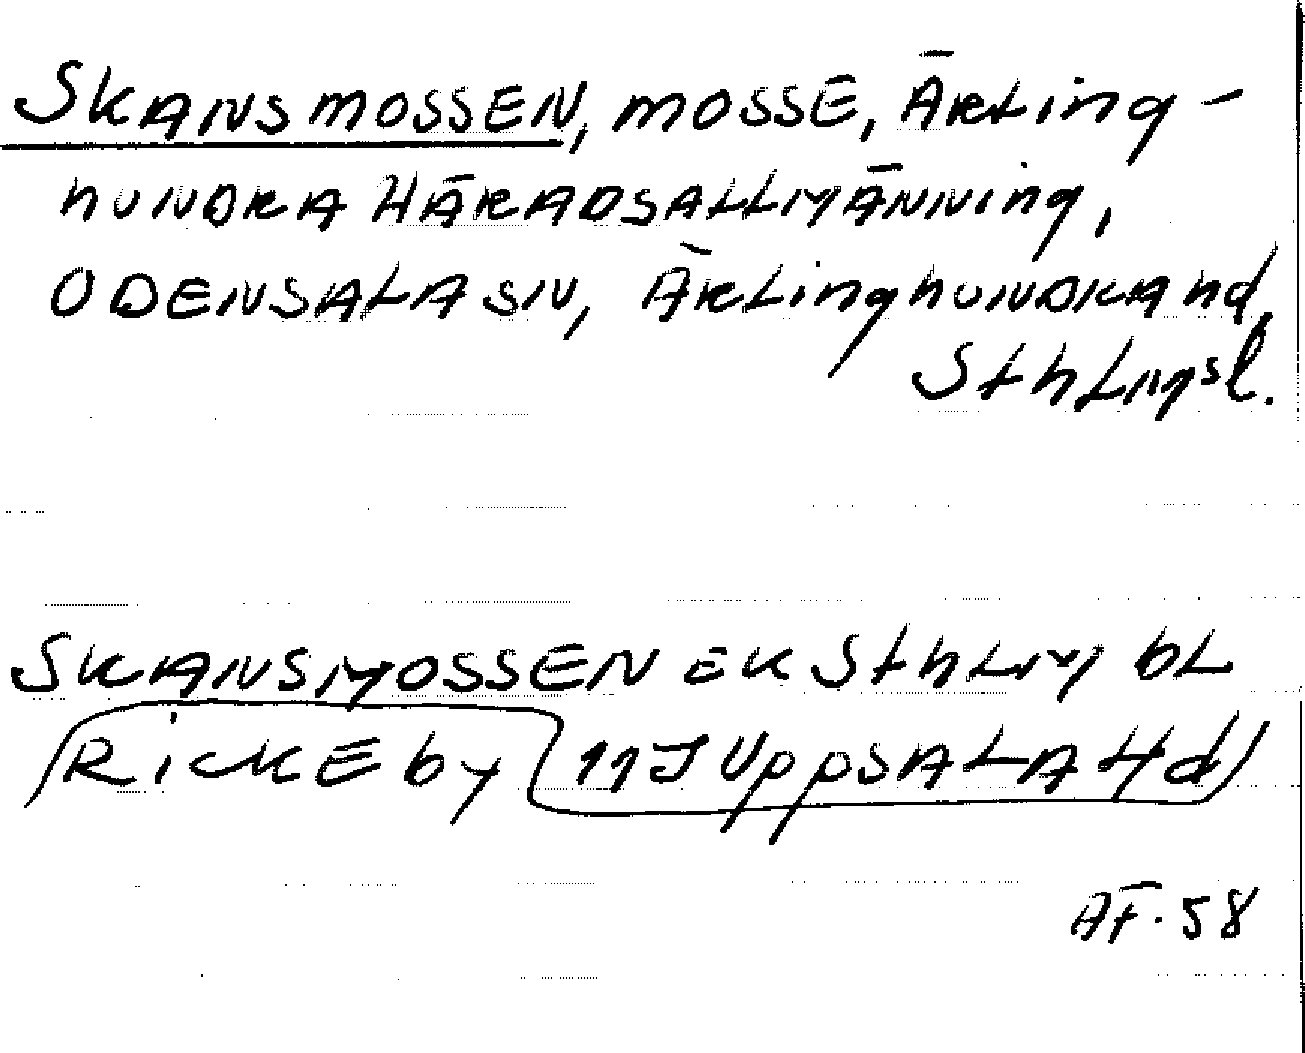 SKANSMOSSEN, MOSSE, ÄRLING-
HUNDRA HÄRADSALLMÄNNING,
ODENSALA SN, ÄRLINGHUNDRA HD,
STHLMSL.
SKANSMOSSEN EK STHLM BL
RICKEBY 11J UPPSALA HD
AF. 58